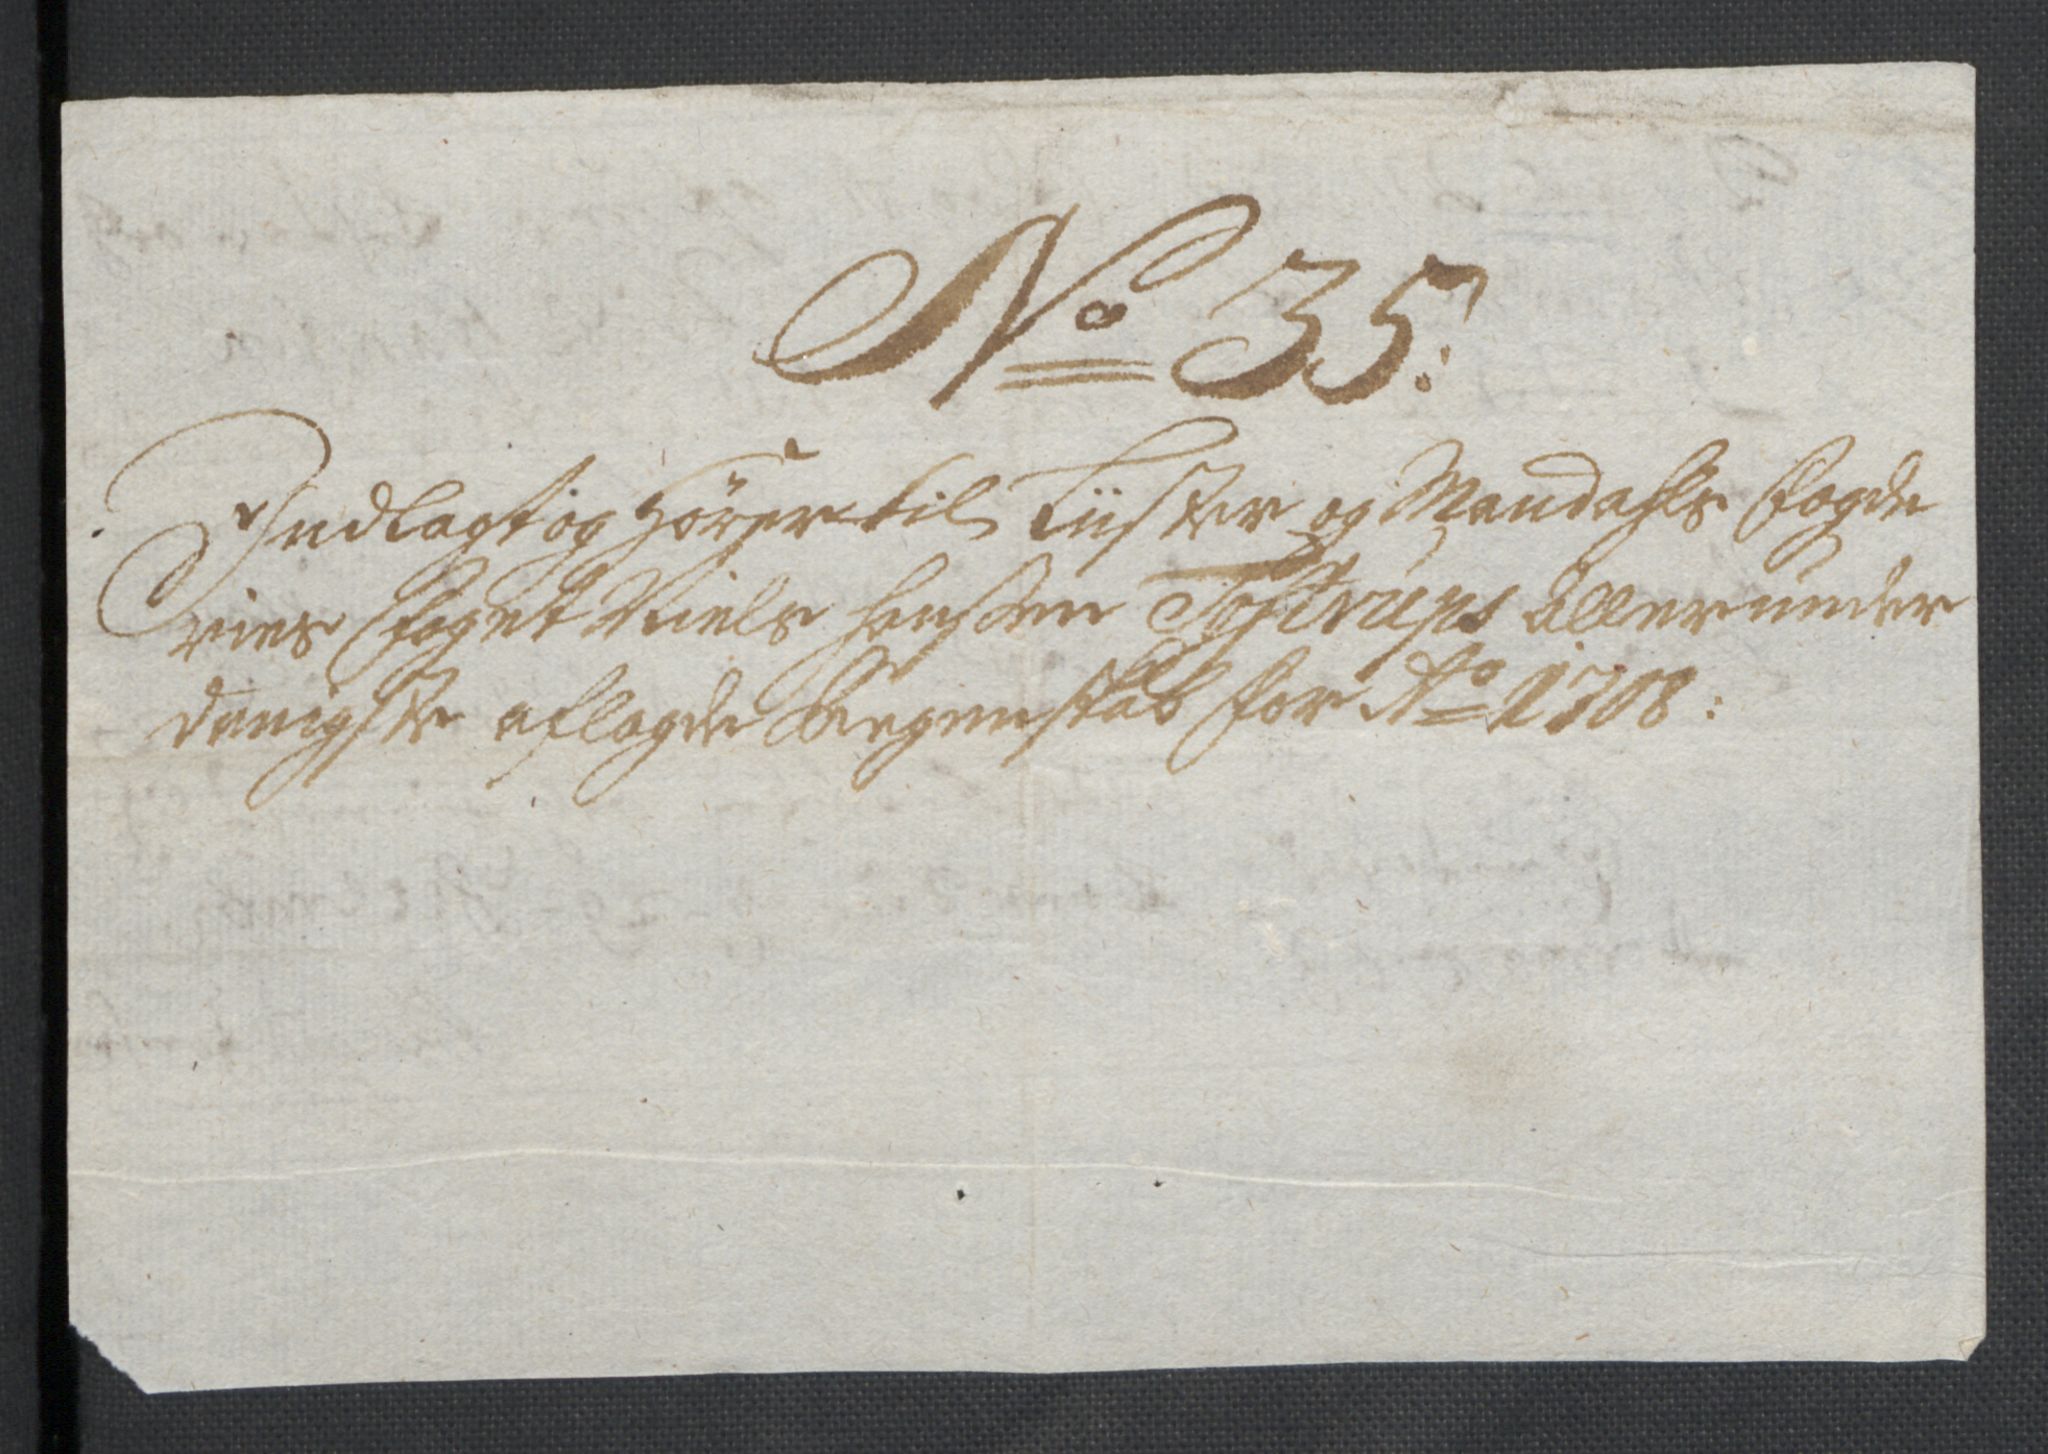 No 35:
Indlagt og Hörer til Lüster og Mandahls Fogde
ries Foget Niels Hansen Tostrups Allerunder
danigste aflagde Regenskab for Ao 1708: